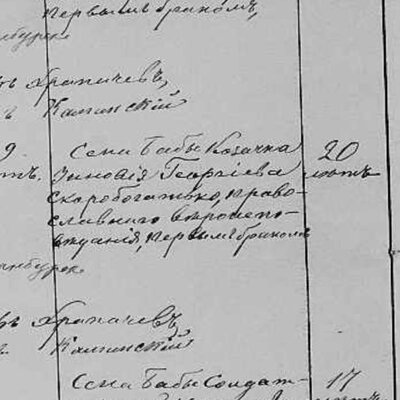 первымъ бракомъ,
Храпачевъ,
Калинскій
9 Села Бабы Казачка 20
Зиновія Георгіева лѣтъ
Скоробогатько, право-
славнаго вѣроиспо-
вѣданія, первымъ бракомъ
Храпачевъ,
Калинскій
Села Бабы Солдат- 17